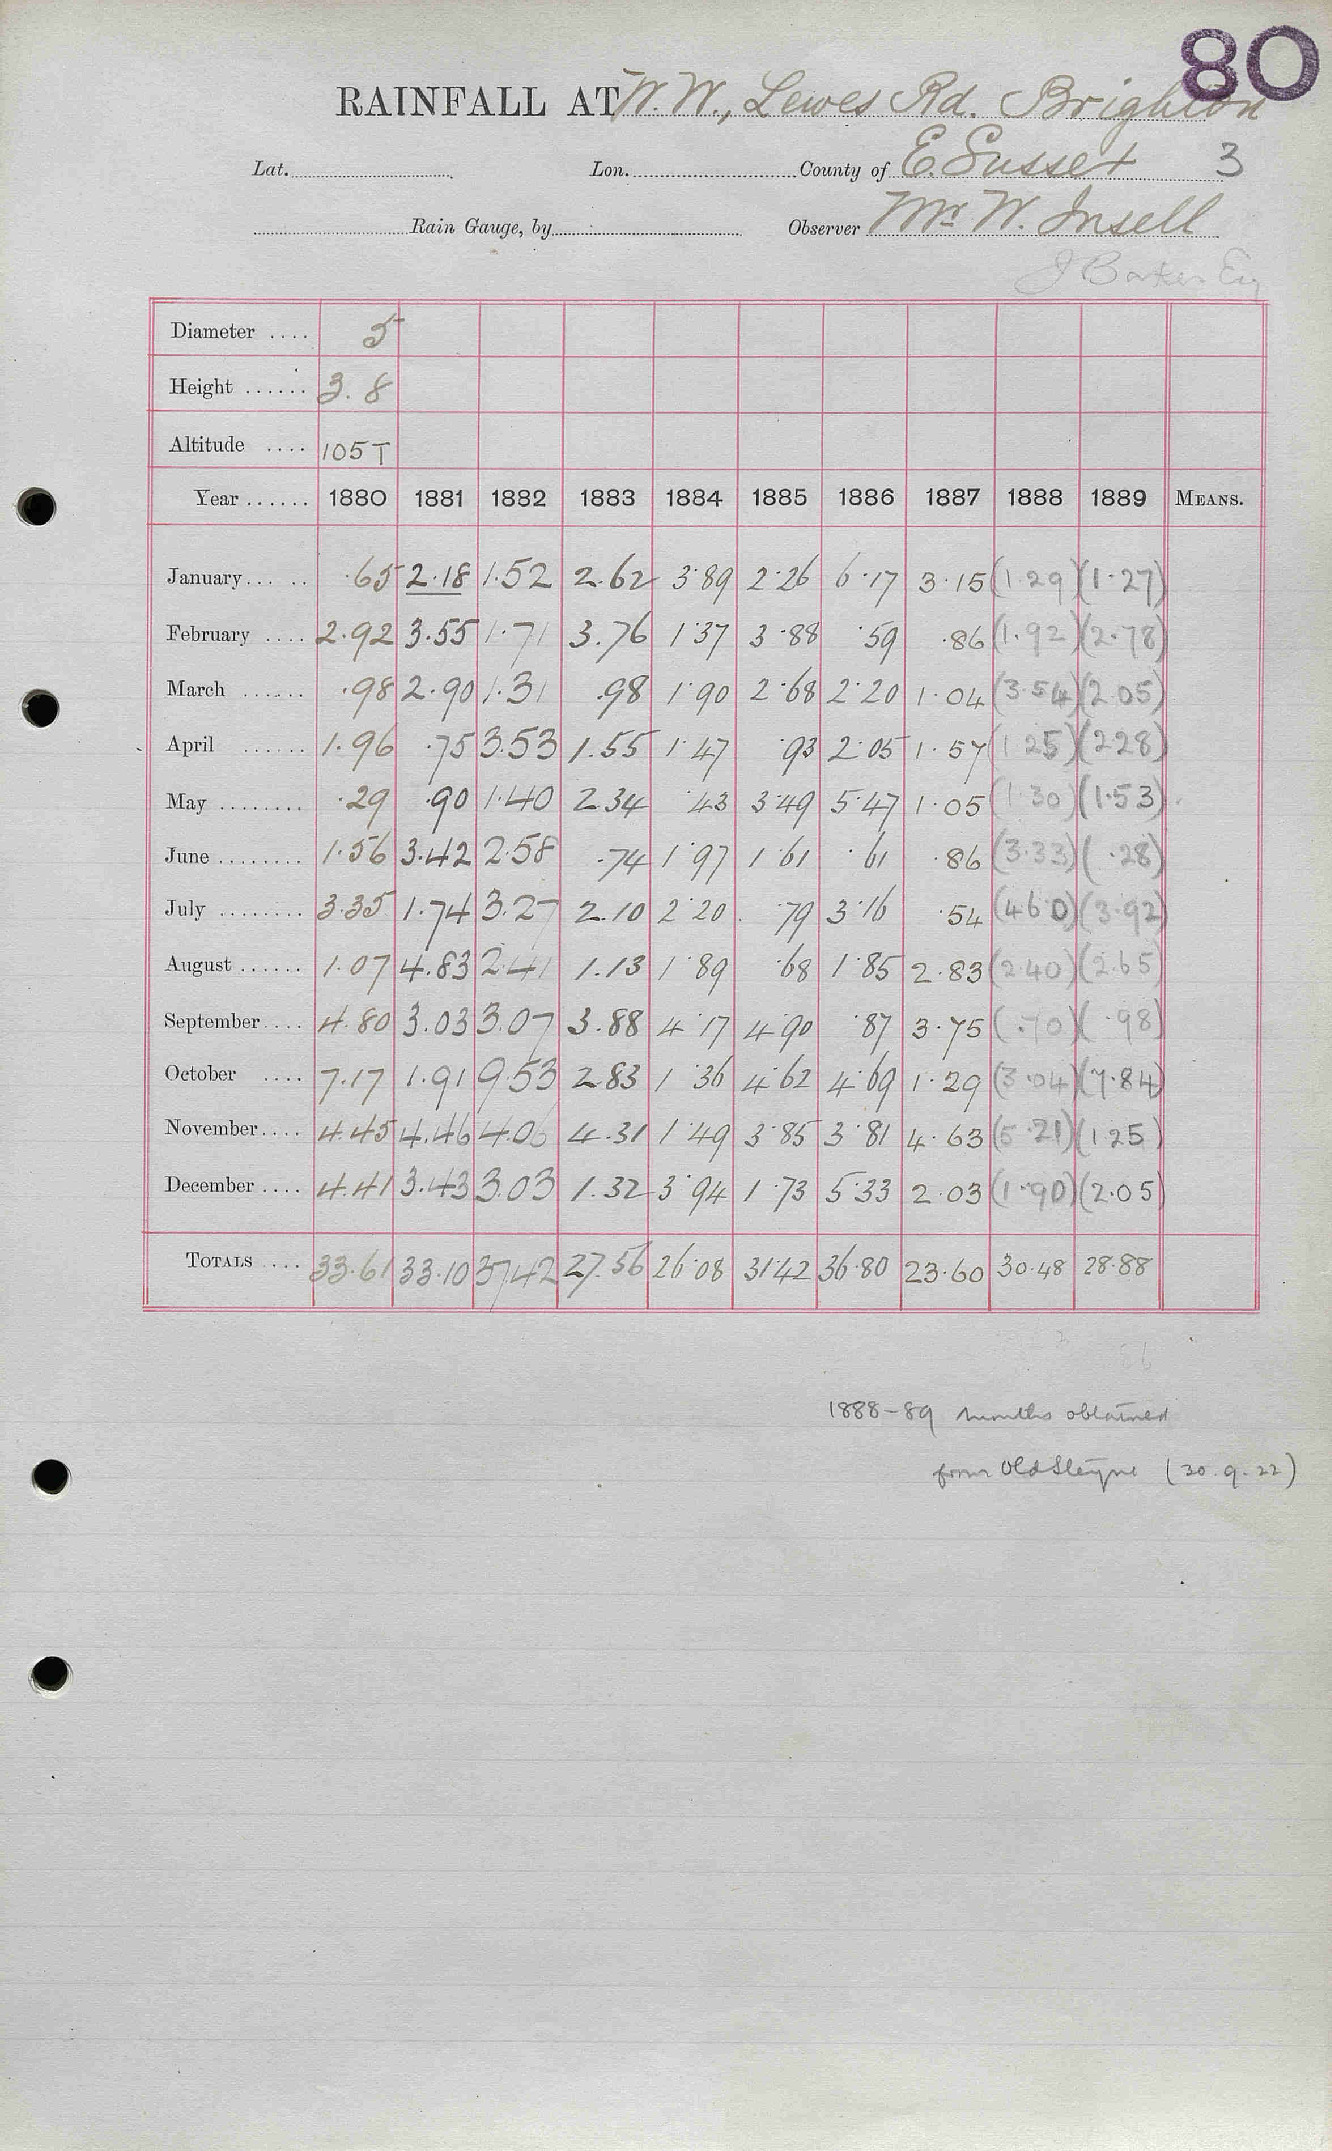 80
RAINFALL AT W. W., Lewes Rd. Brighton
Lat. Lon. County of E. Sussex 3
Rain Gauge, by Observer Mr W. Insell
J Barker Esq
Diameter .... 5
Height ...... 3. 8
Altitude .... 105 T
Year ...... 1880 1881 1882 1883 1884 1885 1886 1887 1888 1889 MEANS.
January ... .. .65 2.18 1.52 2.62 3.89 2.26 6.17 3.15 (1.29) (1.27)
February .... 2.92 3.55 1.71 3.76 1.37 3.88 .59 .86 (1.92) (2.78)
March ...... .98 2.90 1.31 .98 1.90 2.68 2.20 1.04 (3.54) (2.05)
April ...... 1.96 .75 3.53 1.55 1.47 .93 2.05 1.57 (1.25) (2.28)
May ........ .29 .90 1.40 2.34 .43 3.49 5.47 1.05 (1.30) (1.53)
June ........ 1.56 3.42 2.58 .74 1.97 1.61 .61 .86 (3.33) (.28)
July ........ 3.35 1.74 3.27 2.10 2.20 .79 3.16 .54 (4.60) (3.92)
August ...... 1.07 4.83 2.41 1.13 1.89 .68 1.85 2.83 (2.40) (2.65)
September .... 4.80 3.03 3.07 3.88 4.17 4.90 .87 3.75 (.70) (.98)
October .... 7.17 1.91 9.53 2.83 1.36 4.62 4.69 1.29 (3.04) (7.84)
November .... 4.45 4.46 4.06 4.31 1.49 3.85 3.81 4.63 (5.21) (1.25)
December .... 4.41 3.43 3.03 1.32 3.94 1.73 5.33 2.03 (1.90) (2.05)
TOTALS .... 33.61 33.10 37.42 27.56 26.08 31.42 36.80 23.60 30.48 28.88
1888-89 months obtained
from Old Steyne (30.9.22)